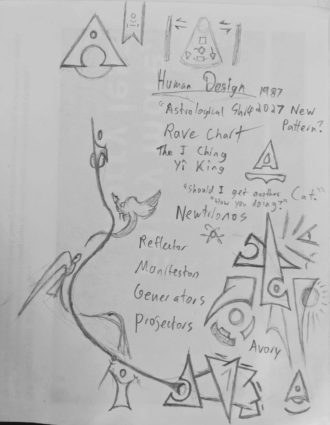 Human Design 1987
"Astrological Shift 2027 New Pattern?
Rave Chart
The I Ching
Yi King
"Should I get another Cat."
"How you doing?"
Newtrionos
Reflector
Manifeston
Generators
Projectors
Avory